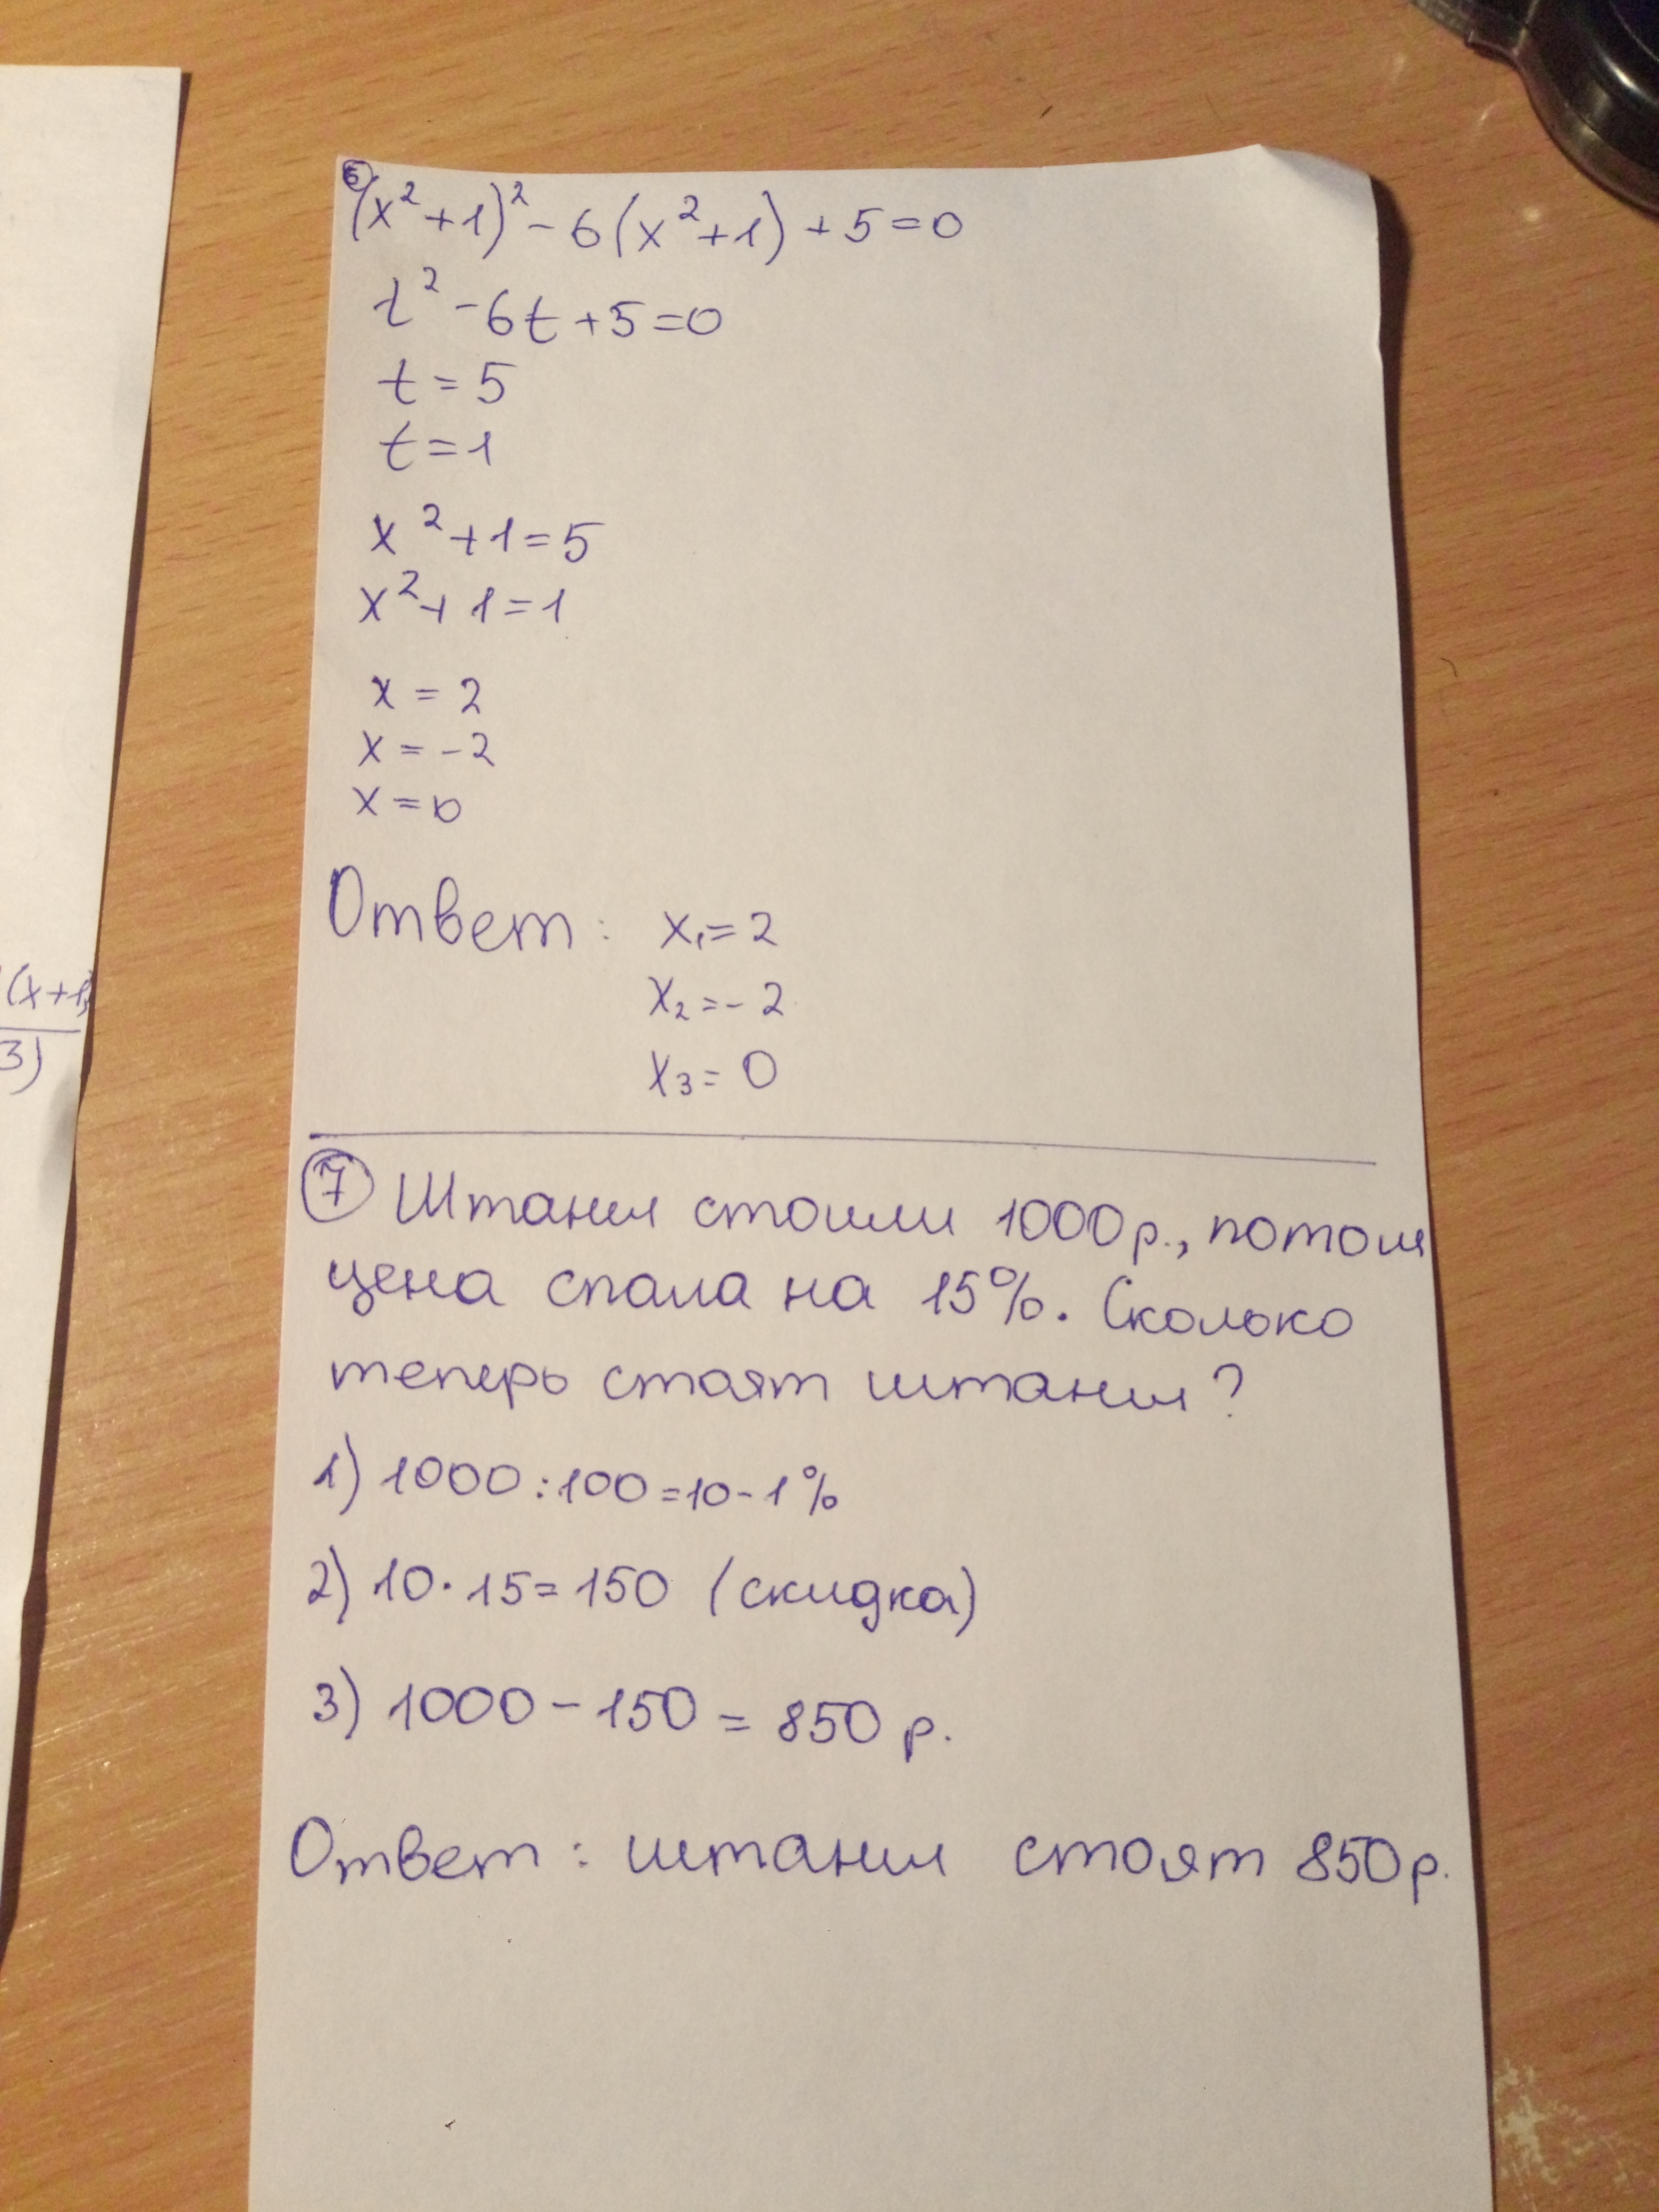 (x+1)
3)
⑥
(x²+1)²-6(x²+1)+5=0
t²-6t+5=0
t=5
t=1
x²+1=5
x²+1=1
x=2
x=-2
x=0
Ответ: x₁=2
x₂=-2
x₃=0
⑦ Штаны стоили 1000р., потом
цена спала на 15%. Сколько
теперь стоят штаны?
1) 1000:100=10-1%
2) 10·15=150 (скидка)
3) 1000-150=850 р.
Ответ: штаны стоят 850р.